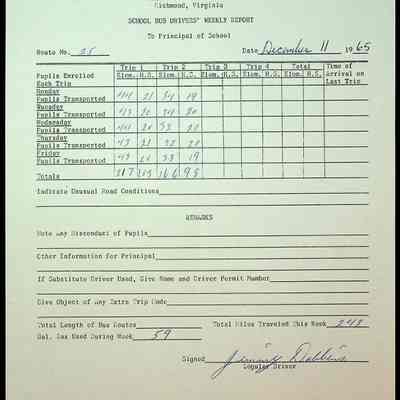 Richmond, Virginia
SCHOOL BUS DRIVERS' WEEKLY REPORT
To Principal of School
Route No. 25 Date December 11 1965
Trip 1 Trip 2 Trip 3 Trip 4 Total Time of
Pupils Enrolled Elem. H.S. Elem. H.S. Elem. H.S. Elem. H.S. Elem. H.S. Arrival on
Each Trip Last Trip
Monday
Pupils Transported 44 21 34 19
Tuesday
Pupils Transported 43 20
Wednesday
Pupils Transported 44 33
Thursday
Pupils Transported 43 21 20
Friday
Pupils Transported 43 33 19
Totals 217 166 95
Indicate Unusual Road Conditions
REMARKS
Note Any Misconduct of Pupils
Other Information for Principal
If Substitute Driver Used, Give Name and Driver Permit Number
Give Object of Any Extra Trip Made
Total Length of Bus Routes Total Miles Traveled This Week 243
Gal. Gas Used During Week 59
Signed Jimmy Dobbins
Regular Driver